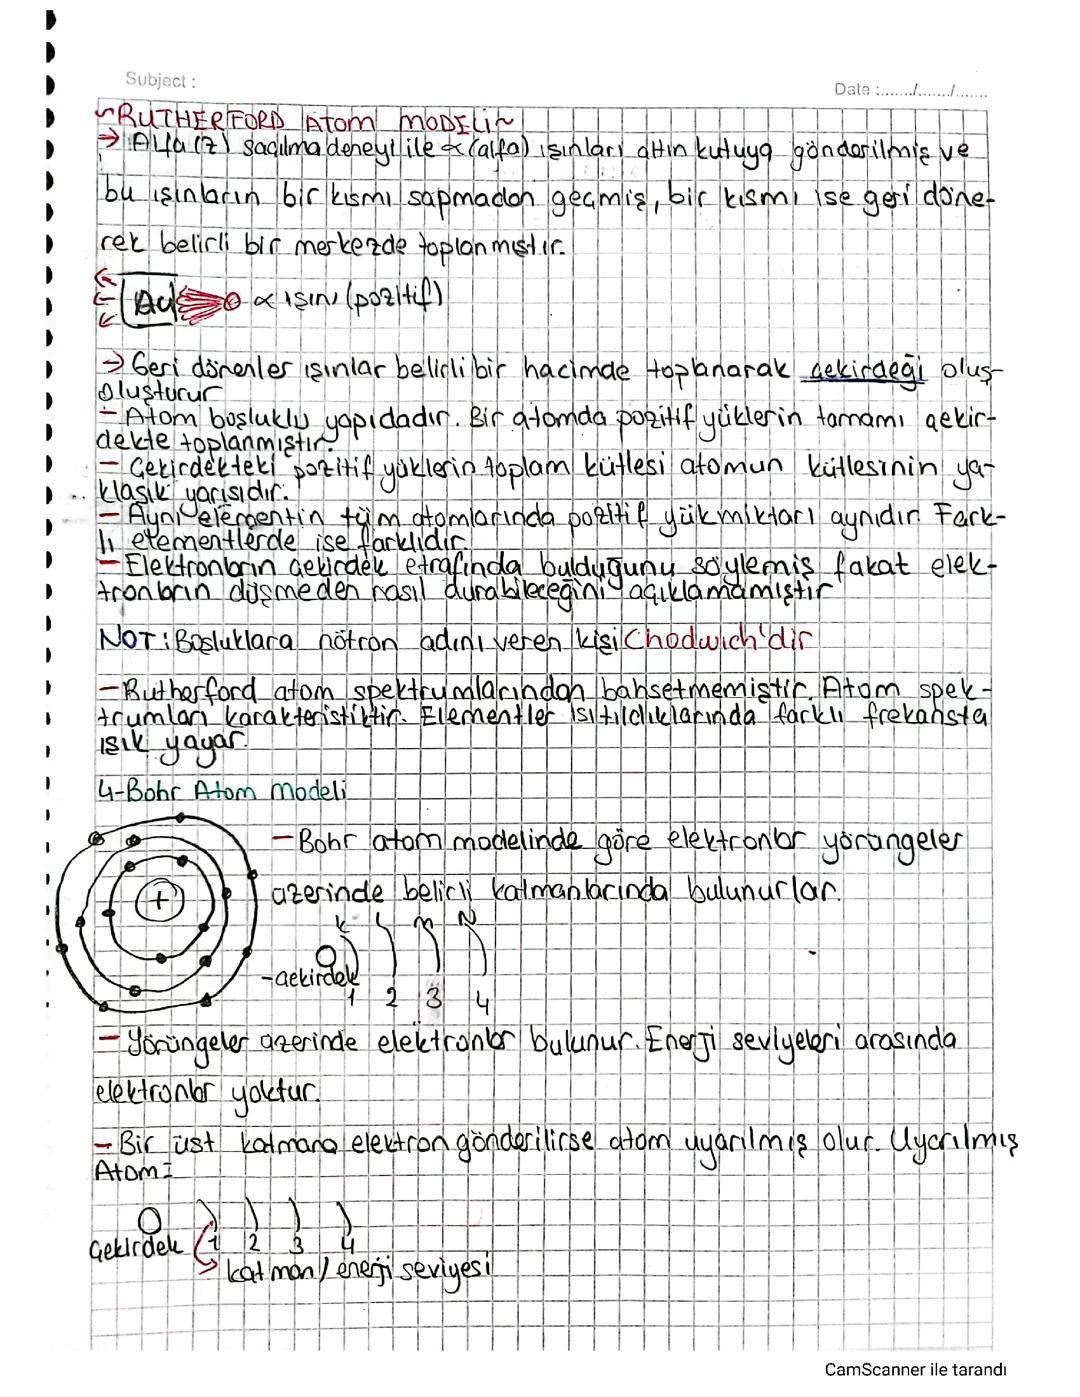 Subject :
Date :......./......./.......
~RUTHERFORD ATOM MODELi~
→ Alfa (2) saçılma deneyi ile α (alfa) ışınları altın kutuya gönderilmiş ve
bu ışınların bir kısmı sapmadan geçmiş, bir kısmı ise geri döne-
rek belirli bir merkezde toplanmıştır.
Au α ışını (pozitif)
→ Geri dönenler ışınlar belirli bir hacimde toplanarak çekirdeği oluş-
oluşturur
- Atom boşluklu yapıdadır. Bir atomda pozitif yüklerin tamamı çekir-
dekte toplanmıştır.
- Çekirdekteki pozitif yüklerin toplam kütlesi atomun kütlesinin ya-
klaşık yarısıdır.
- Aynı elementin tüm atomlarında pozitif yük miktarı aynıdır. Fark-
lı elementlerde ise farklıdır.
- Elektronların çekirdek etrafında bulduğunu söylemiş fakat elek-
tronların düşmeden nasıl durabileceğini açıklamamıştır
NOT: Boşluklara nötron adını veren kişi Chodwich'dir
- Rutherford atom spektrumlarından bahsetmemiştir. Atom spek-
trumları karakteristiktir. Elementler ısıtıldıklarında farklı frekansta
ışık yayar.
4-Bohr Atom Modeli
- Bohr atom modelinde göre elektronlar yörüngeler
üzerinde belirli katmanlarında bulunurlar.
+
K L M N
-Çekirdek
1 2 3 4
- Yörüngeler üzerinde elektronlar bulunur. Enerji seviyeleri arasında
elektronlar yoktur.
- Bir üst katmana elektron gönderilirse atom uyarılmış olur. Uyarılmış
Atom=
Çekirdek 1 2 3 4
katman / enerji seviyesi
CamScanner ile tarandı